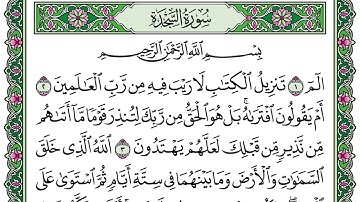 سُورَةُ السَّجْدَةِ
بِسْمِ اللَّهِ الرَّحْمَٰنِ الرَّحِيمِ
الٓمٓ ١ تَنزِيلُ الْكِتَابِ لَا رَيْبَ فِيهِ مِن رَّبِّ الْعَالَمِينَ ٢
أَمْ يَقُولُونَ افْتَرَاهُ ۚ بَلْ هُوَ الْحَقُّ مِن رَّبِّكَ لِتُنذِرَ قَوْمًا مَّا أَتَاهُم
مِّن نَّذِيرٍ مِّن قَبْلِكَ لَعَلَّهُمْ يَهْتَدُونَ ٣ اللَّهُ الَّذِي خَلَقَ
السَّمَاوَاتِ وَالْأَرْضَ وَمَا بَيْنَهُمَا فِي سِتَّةِ أَيَّامٍ ثُمَّ اسْتَوَىٰ عَلَى